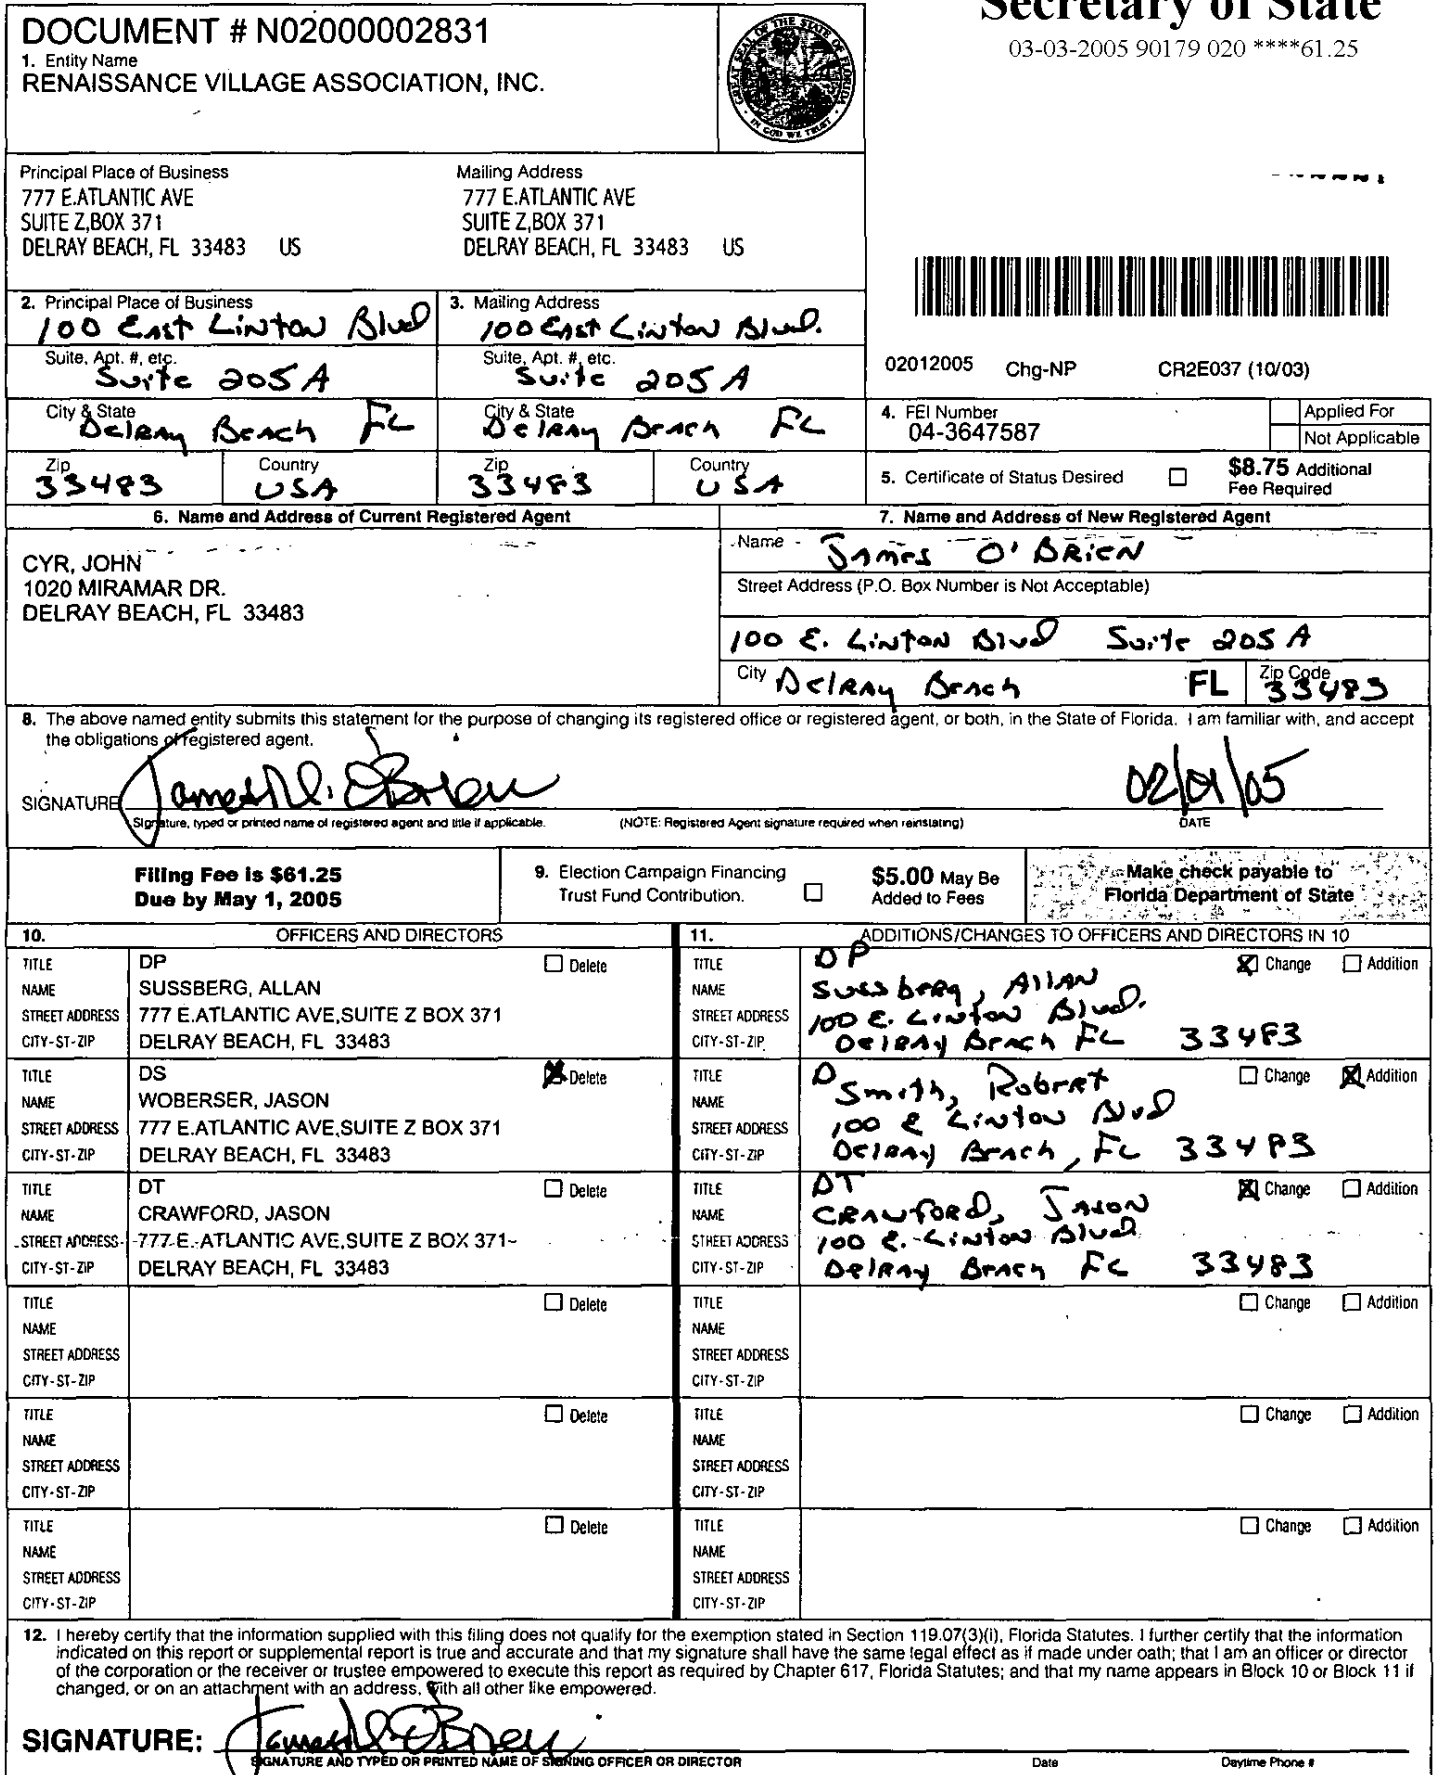 Secretary of State
03-03-2005 90179 020 ****61.25
DOCUMENT # N02000002831
1. Entity Name
RENAISSANCE VILLAGE ASSOCIATION, INC.
GREAT SEAL OF THE STATE OF FLORIDA
IN GOD WE TRUST
Principal Place of Business
777 E.ATLANTIC AVE
SUITE Z,BOX 371
DELRAY BEACH, FL 33483 US
Mailing Address
777 E.ATLANTIC AVE
SUITE Z,BOX 371
DELRAY BEACH, FL 33483 US
2. Principal Place of Business
100 East Linton Blvd
Suite, Apt. #, etc.
Suite 205A
City & State
Delray Beach FL
Zip
33483
Country
USA
3. Mailing Address
100 East Linton Blvd.
Suite, Apt. #, etc.
Suite 205A
City & State
Delray Beach FL
Zip
33483
Country
USA
02012005 Chg-NP CR2E037 (10/03)
4. FEI Number
04-3647587
Applied For
Not Applicable
5. Certificate of Status Desired
$8.75 Additional
Fee Required
6. Name and Address of Current Registered Agent
CYR, JOHN
1020 MIRAMAR DR.
DELRAY BEACH, FL 33483
7. Name and Address of New Registered Agent
Name James O'Brien
Street Address (P.O. Box Number is Not Acceptable)
100 E. Linton Blvd Suite 205A
City Delray Beach FL Zip Code 33483
8. The above named entity submits this statement for the purpose of changing its registered office or registered agent, or both, in the State of Florida. I am familiar with, and accept
the obligations of registered agent.
SIGNATURE James M. O'Brien 02/01/05
Signature, typed or printed name of registered agent and title if applicable. (NOTE: Registered Agent signature required when reinstating) DATE
Filing Fee is $61.25
Due by May 1, 2005
9. Election Campaign Financing
Trust Fund Contribution.
$5.00 May Be
Added to Fees
Make check payable to
Florida Department of State
10. OFFICERS AND DIRECTORS
TITLE DP Delete
NAME SUSSBERG, ALLAN
STREET ADDRESS 777 E.ATLANTIC AVE,SUITE Z BOX 371
CITY-ST-ZIP DELRAY BEACH, FL 33483
TITLE DS Delete
NAME WOBERSER, JASON
STREET ADDRESS 777 E.ATLANTIC AVE,SUITE Z BOX 371
CITY-ST-ZIP DELRAY BEACH, FL 33483
TITLE DT Delete
NAME CRAWFORD, JASON
STREET ADDRESS 777 E. ATLANTIC AVE,SUITE Z BOX 371
CITY-ST-ZIP DELRAY BEACH, FL 33483
TITLE Delete
NAME
STREET ADDRESS
CITY-ST-ZIP
TITLE Delete
NAME
STREET ADDRESS
CITY-ST-ZIP
TITLE Delete
NAME
STREET ADDRESS
CITY-ST-ZIP
11. ADDITIONS/CHANGES TO OFFICERS AND DIRECTORS IN 10
TITLE DP Change Addition
NAME Sussberg, Allan
STREET ADDRESS 100 E. Linton Blvd.
CITY-ST-ZIP Delray Beach FL 33483
TITLE D Change Addition
NAME Smith, Robert
STREET ADDRESS 100 E Linton Blvd
CITY-ST-ZIP Delray Beach, FL 33483
TITLE DT Change Addition
NAME Crawford, Jason
STREET ADDRESS 100 E. Linton Blvd
CITY-ST-ZIP Delray Beach FL 33483
TITLE Change Addition
NAME
STREET ADDRESS
CITY-ST-ZIP
TITLE Change Addition
NAME
STREET ADDRESS
CITY-ST-ZIP
TITLE Change Addition
NAME
STREET ADDRESS
CITY-ST-ZIP
12. I hereby certify that the information supplied with this filing does not qualify for the exemption stated in Section 119.07(3)(i), Florida Statutes. I further certify that the information
indicated on this report or supplemental report is true and accurate and that my signature shall have the same legal effect as if made under oath; that I am an officer or director
of the corporation or the receiver or trustee empowered to execute this report as required by Chapter 617, Florida Statutes; and that my name appears in Block 10 or Block 11 if
changed, or on an attachment with an address, with all other like empowered.
SIGNATURE: James M O'Brien
SIGNATURE AND TYPED OR PRINTED NAME OF SIGNING OFFICER OR DIRECTOR Date Daytime Phone #